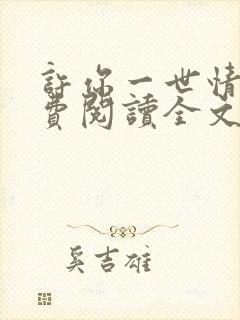 許你一世情
費閱讀全文
奚吉雄